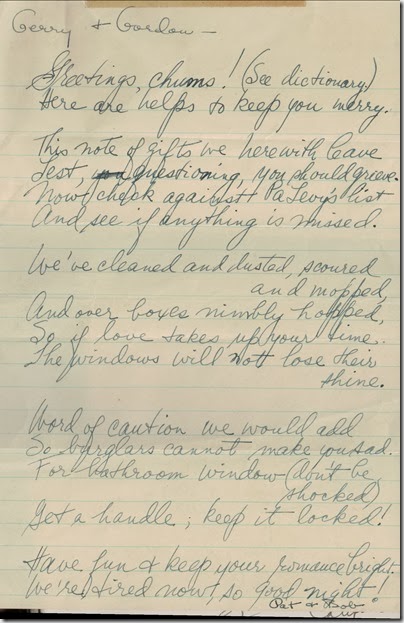 Gerry & Gordon —
Greetings, chums! (See dictionary)
Here are helps to keep you merry.
This note of gifts we herewith leave
Lest, questioning, you should grieve.
Now check against Pa Levy's list
And see if anything is missed.
We've cleaned and dusted, scoured
and mopped,
And over boxes nimbly hopped,
So if love takes up your time
The windows will not lose their
shine.
Word of caution we would add
So burglars cannot make you sad.
For bathroom window (don't be
shocked)
Get a handle; keep it locked!
Have fun & keep your romance bright.
We're tired now, so good night!
Pat & Bob